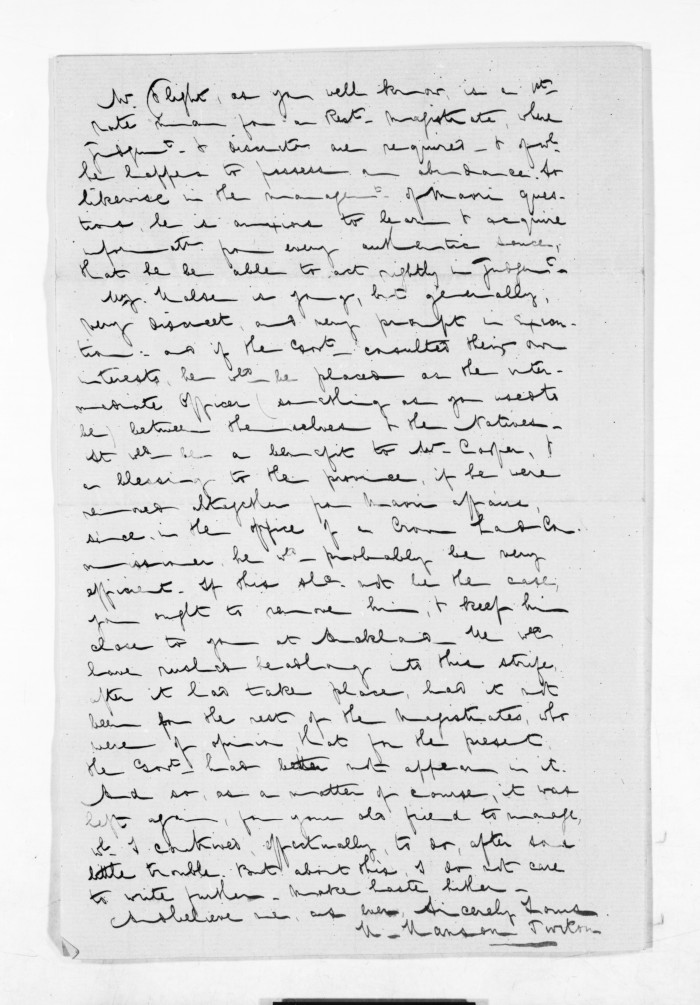 Mr. Flight, as you well know, is a 1st
rate man for a Rest. Magistrate, where
Judgmt. & discretn are required - & of wh.
he happens to possess an abundance. So
likewise in the managemt. of Maori ques-
tions, he is anxious to learn & acquire
informatn from every authentic source,
that he be able to act rightly in Judgmt.
Mr. Halse is young, but generally,
very discreet, and very prompt in Execu-
tion - and if the Govt. consulted their own
interests, he wld. be placed as the inter-
mediate Officer (something as you used to
be) between themselves & the Natives -
It wld. be a benefit to Mr. Cooper, &
a blessing to the province, if he were
removed altogether from Maori affairs,
since, in the office of a Crown Lands Com-
missioner he wd. probably be very
efficient. If this shd. not be the case,
you ought to remove him, & keep him
close to you at Auckland. He wd.
have rushed headlong into this strife,
after it had taken place, had it not
been for the rest of the Magistrates, who
were of opinion, that for the present,
the Govt. had better not appear in it.
And so, as a matter of course, it was
left again, for your old friend to manage,
wh. I contrived, effectually, to do, after some
little trouble. But about this, I do not care
to write further - Make haste hither -
And believe me, as ever, Sincerely Yours
H. Hanson Turton